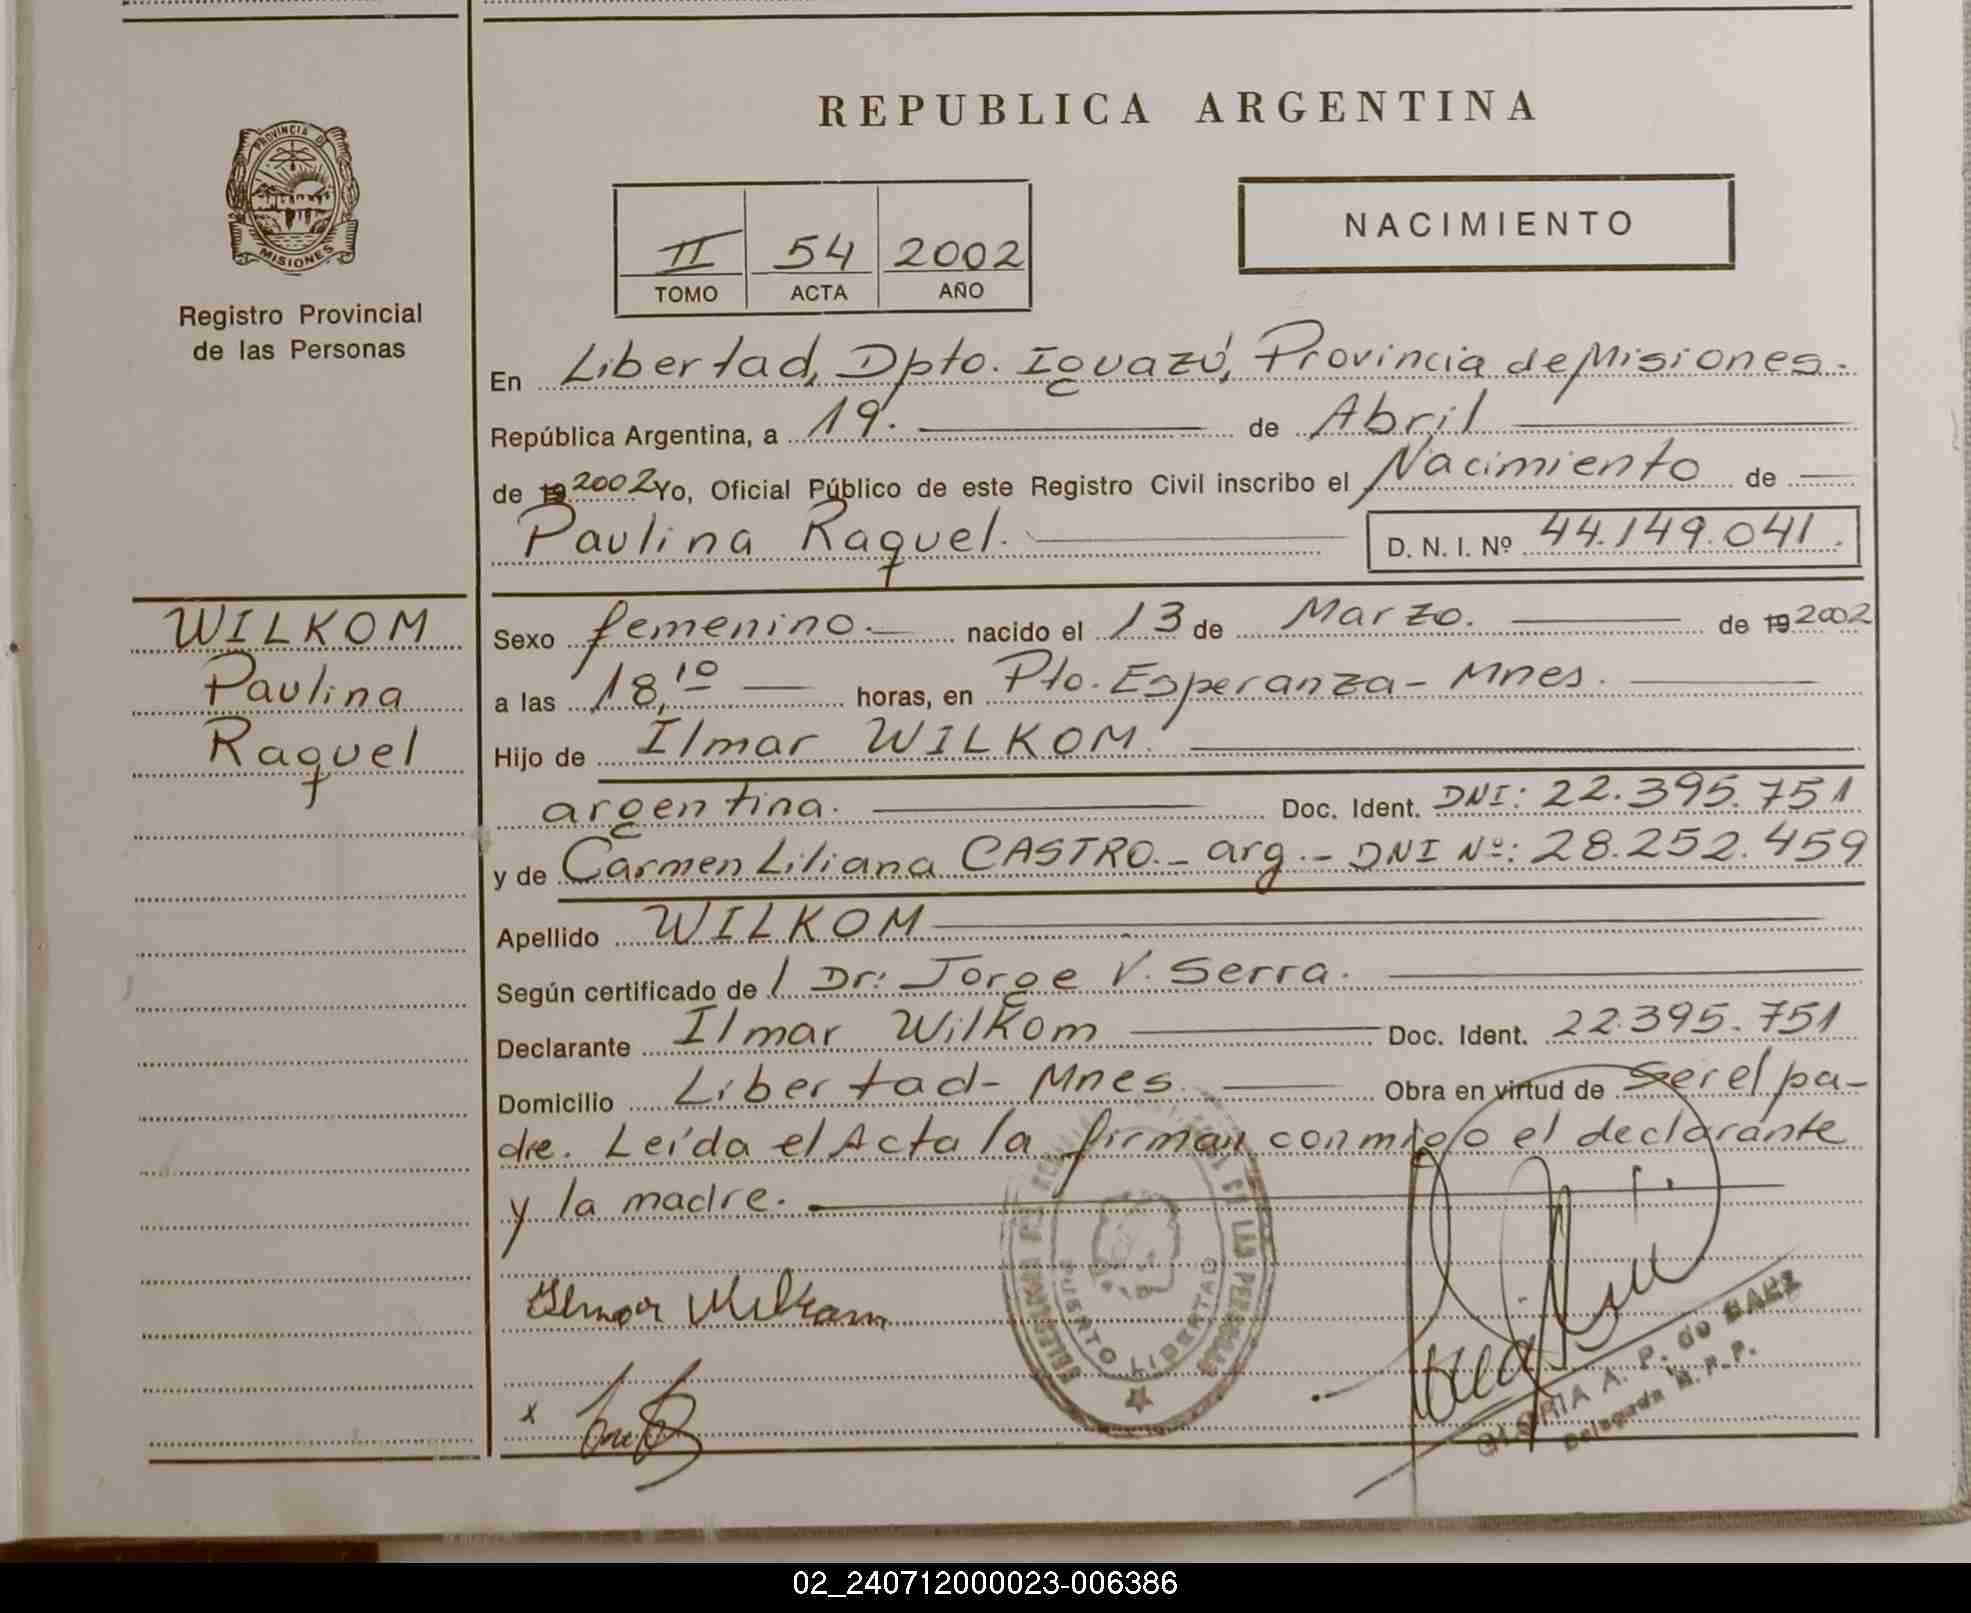 REPUBLICA ARGENTINA
PROVINCIA DE
MISIONES
Registro Provincial
de las Personas
II 54 2002
TOMO ACTA AÑO
NACIMIENTO
En Libertad, Dpto. Iguazú, Provincia de Misiones.
República Argentina, a 19. de Abril
de 19 2002 Yo, Oficial Público de este Registro Civil inscribo el Nacimiento de
Paulina Raquel. D. N. I. Nº 44.149.041.
WILKOM
Paulina
Raquel
Sexo femenino. nacido el 13 de Marzo. de 19 2002
a las 18,10 horas, en Pto. Esperanza - Mnes.
Hijo de Ilmar WILKOM.
argentina. Doc. Ident. DNI: 22.395.751
y de Carmen Liliana CASTRO.- arg.- DNI Nº: 28.252.459
Apellido WILKOM
Según certificado de l Dr: Jorge V. Serra.
Declarante Ilmar Wilkom Doc. Ident. 22.395.751
Domicilio Libertad - Mnes. Obra en virtud de Ser el pa-
dre. Leída el Acta la firman conmigo el declarante
y la madre.
Ilmar Wilkom
x
PUERTO LIBERTAD
DE LAS PERSONAS
GLORIA A. P. de BAEZ
Delegada R.P.P.
02_240712000023-006386